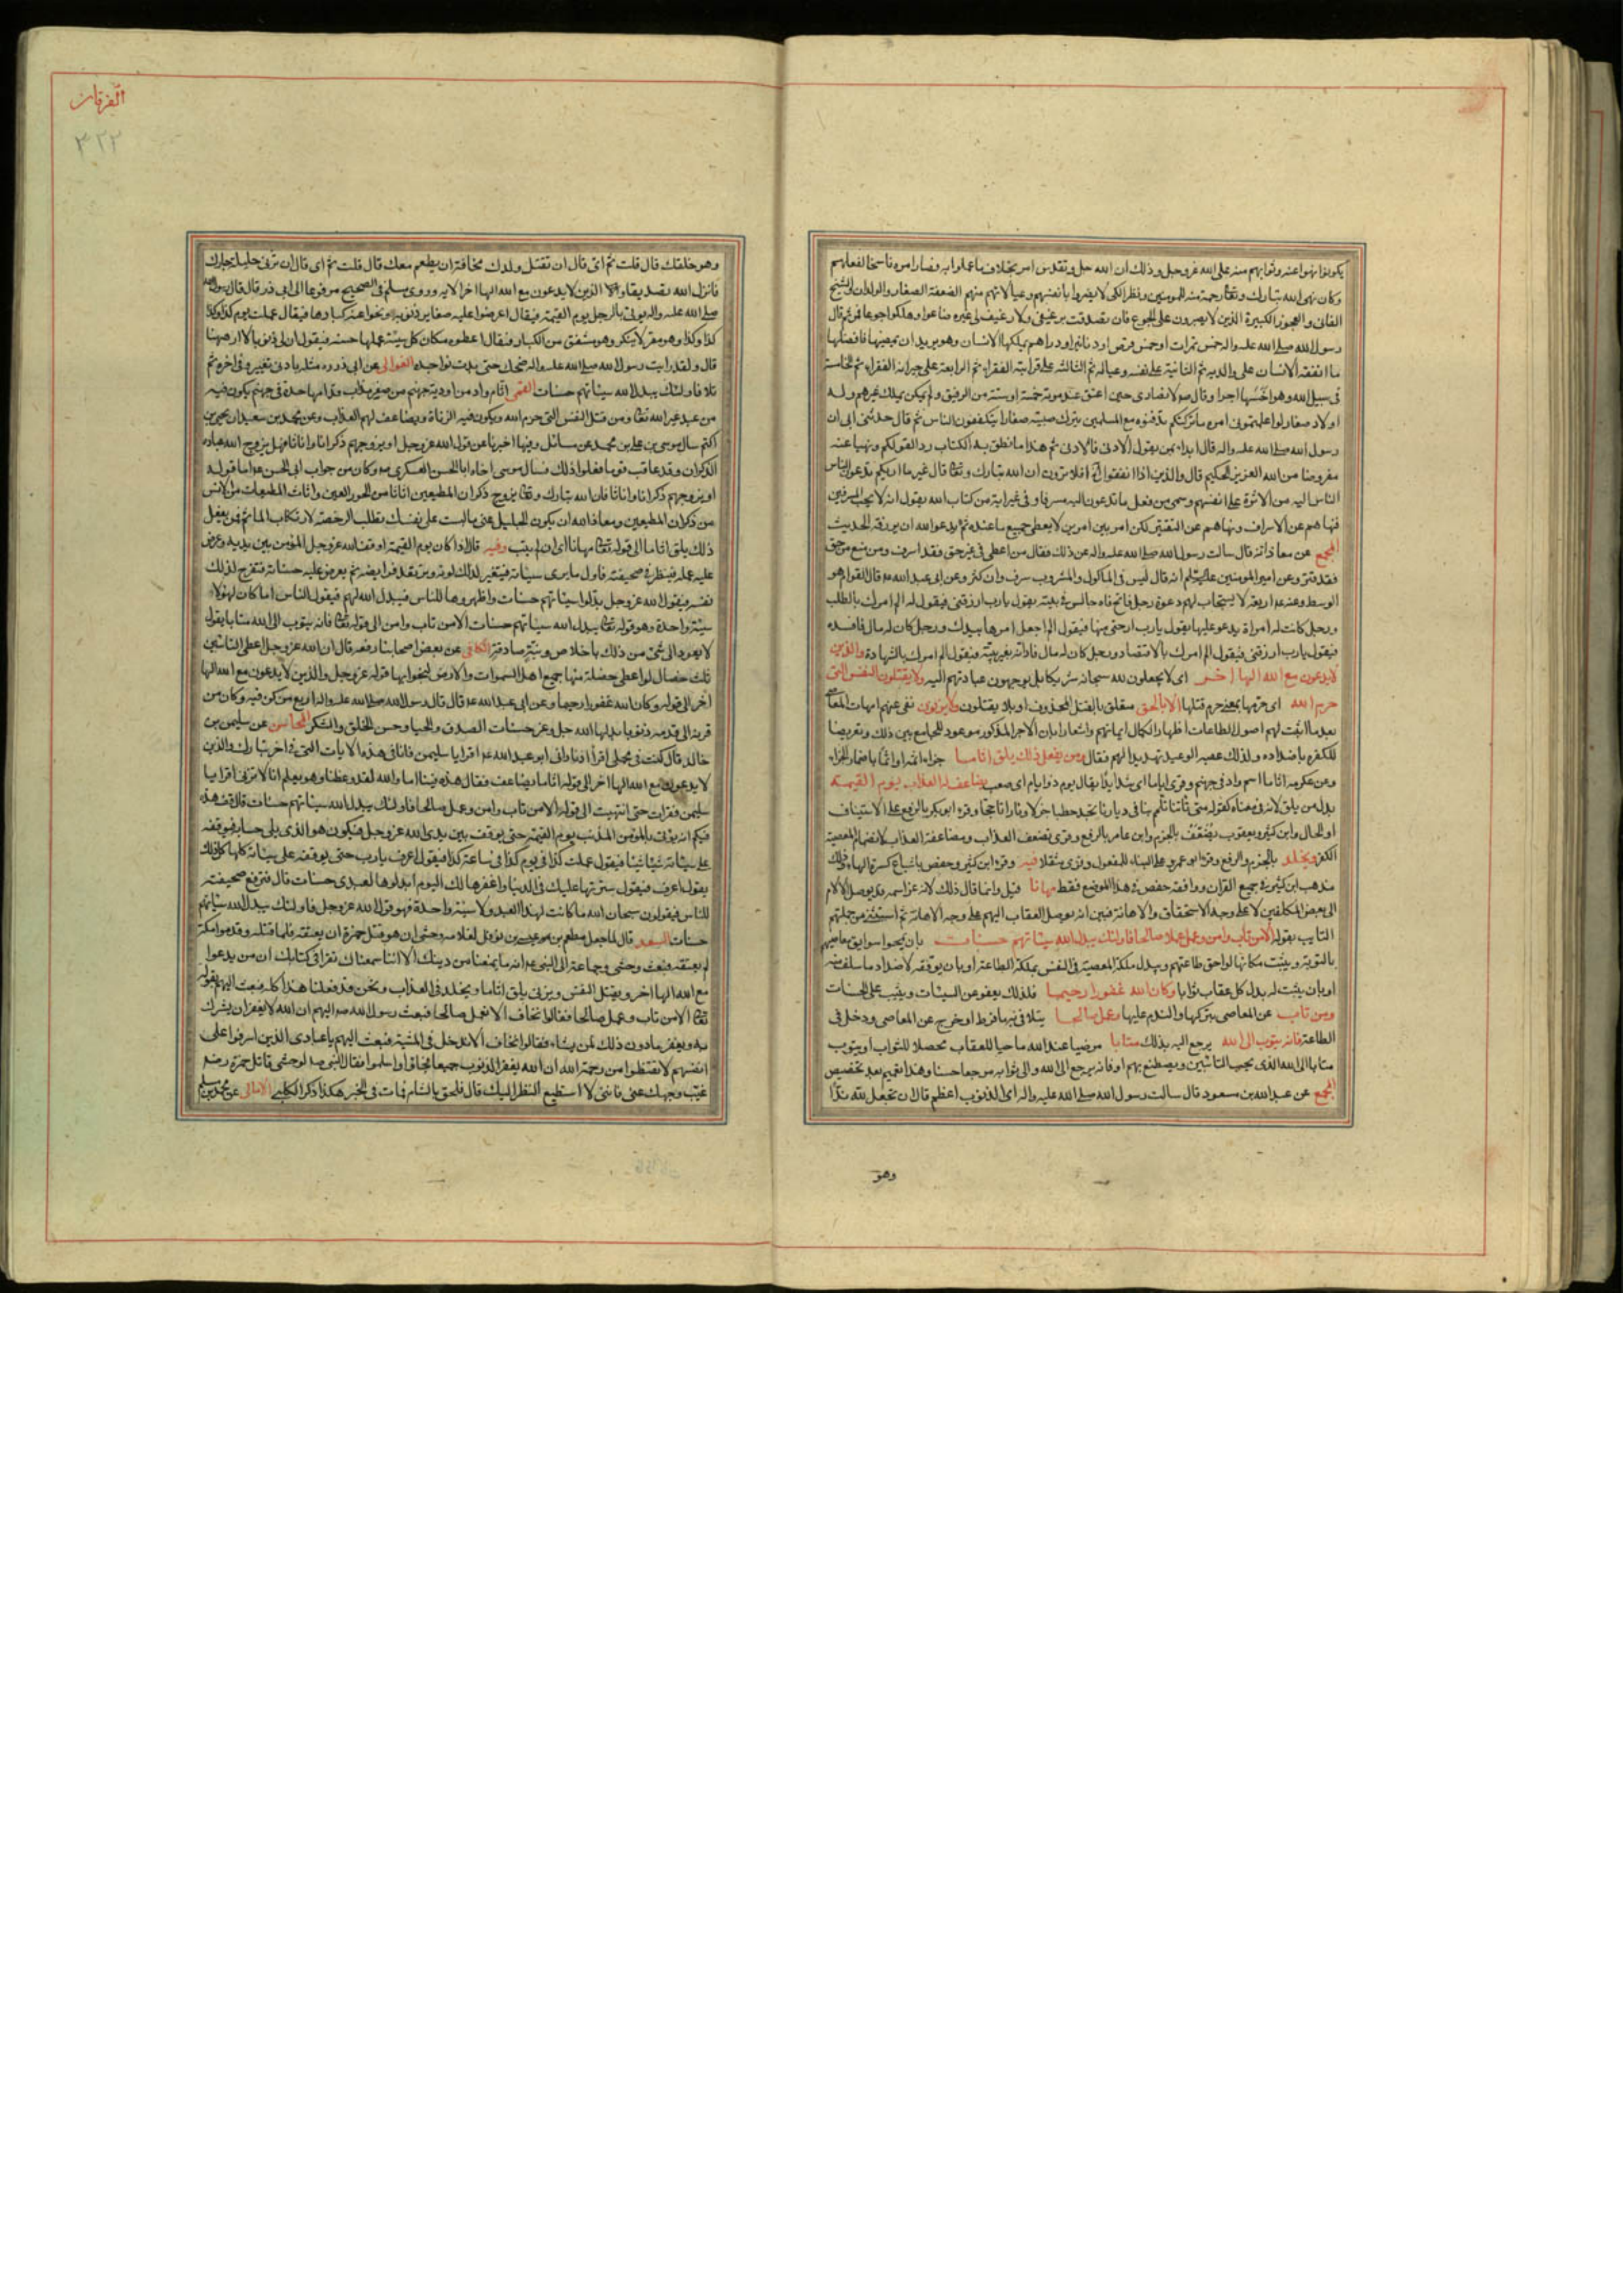 يكونوا نهوا عنه وثوابهم منه على الله عز وجل وذلك ان الله جل وتقدس امر بخلاف ما عملوا به فصار امره ناسخا لفعلهم
وكان نهى الله تبارك وتعالى رحمة منه للمؤمنين ونظرا لكى لا يضروا بانفسهم وعيالاتهم منهم الضعفة الصغار والولدان والشيخ
الفانى والعجوز الكبيرة الذين لا يصبرون على الجوع فان تصدقت برغيفى ولا رغيف لى غيره ضاعوا وهلكوا جوعا فمن ثم قال
رسول الله صلى الله عليه واله خمس تمرات او خمس قرص او دنانير او دراهم يملكها الانسان وهو يريد ان يمضيها فافضلها
ما انفقه الانسان على والديه ثم الثانية على نفسه وعياله ثم الثالثة على قرابته الفقراء ثم الرابعة على جيرانه الفقراء ثم الخامسة
فى سبيل الله وهو اخسها اجرا وقال ص للانصارى حين اعتق عند موته خمسة او ستة من الرقيق ولم يكن يملك غيرهم وله
اولاد صغار لو اعلمتمونى امره ما تركتكم تدفنوه مع المسلمين يترك صبية صغارا يتكففون الناس ثم قال حدثنى ابى ان
رسول الله صلى الله عليه واله قال ابدء بمن تعول الادنى فالادنى ثم هذا ما نطق به الكتاب ردا لقولكم ونهيا عنه
مفروضا من الله العزيز الحكيم قال والذين اذا انفقوا افلا ترون ان الله تبارك وتعالى قال غير ما اريكم تدعون الناس
الناس اليه من الاثرة على انفسهم وسمى من فعل ما تدعون اليه مسرفا وفى غير اية من كتاب الله يقول انه لا يحب المسرفين
فنهاهم عن الاسراف ونهاهم عن التقتير لكن امر بين امرين لا يعطى جميع ما عنده ثم يدعو الله ان يرزقه الحديث
المجمع عن معاذ انه قال سالت رسول الله صلى الله عليه واله عن ذلك فقال من اعطى فى غير حق فقد اسرف ومن منع من حق
فقد قتر وعن امير المؤمنين انه قال ليس فى الماكول والمشروب سرف وان كثر وعن ابى عبد الله ع قال القوام هو
الوسط وعنه ع اربعة لا يستجاب لهم دعوة رجل فاتح فاه جالس فى بيته يقول يا رب ارزقنى فيقول له الم امرك بالطلب
ورجل كانت له امراة يدعو عليها يقول يا رب ارحنى منها فيقول الم اجعل امرها بيدك ورجل كان له مال فافسده
فيقول يا رب ارزقنى فيقول الم امرك بالاقتصاد ورجل كان له مال فادانه بغير بينة فيقول الم امرك بالشهادة والذين
لا يدعون مع الله الها اخر اى لا يجعلون لله سبحانه شريكا بل يوجهون عبادتهم اليه ولا يقتلون النفس التى
حرم الله اى حرمها بمعنى حرم قتلها الا بالحق متعلق بالقتل المحذوف او بلا يقتلون ولا يزنون نفى عنهم امهات المعاصى
بعد ما اثبت لهم اصول الطاعات اظهارا لكمال ايمانهم واشعارا بان الاجر المذكور موعود للجامع بين ذلك وتعريضا
للكفرة باضداده ولذلك عقبه الوعيد تهديدا لهم فقال ومن يفعل ذلك يلق اثاما جزاء اثم او اثما باضمار الجزاء
وعن عكرمة اثاما اسم واد فى جهنم وقرئ اياما اى شدايد يقال يوم ذو ايام اى صعب يضاعف له العذاب يوم القيمة
بدل من يلق لانه فى معناه كقوله متى تاتنا تلمم بنا فى ديارنا تجد حطبا جزلا ونارا تاججا وقرء ابو بكر بالرفع على الاستيناف
او الحال وابن كثير ويعقوب يضعف بالجزم وابن عامر بالرفع وقرئ نضعف العذاب ومضاعفة العذاب لانضمام المعصية
الكفر ويخلد بالجزم والرفع وقرء ابو عمرو على البناء للمفعول وقرئ مثقلا فيه وقرء ابن كثير وحفص باشباع كسرة الهاء وذلك
مذهب ابن كثير فى جميع القران ووافقه حفص فى هذا الموضع فقط مهانا قيل وانما قال ذلك لانه عز اسمه قد يوصل الالام
الى بعض المكلفين لا على وجه الاستحقاق والاهانة فبين انه يوصل العقاب اليهم على وجه الاهانة ثم استثنى من جملتهم
التايب بقوله الا من تاب وامن وعمل عملا صالحا فاولئك يبدل الله سيئاتهم حسنات بان يمحو سوابق معاصيهم
بالتوبة ويثبت مكانها لواحق طاعتهم ويبدل ملكة المعصية فى النفس بملكة الطاعة او بان يوفقه لاضداد ما سلف منه
او بان يثبت له بدل كل عقاب ثوابا وكان الله غفورا رحيما فلذلك يعفو عن السيئات ويثيب على الحسنات
ومن تاب عن المعاصى بتركها والندم عليها وعمل صالحا يتلافى بها فرط او خرج عن المعاصى ودخل فى
الطاعة فانه يتوب الى الله يرجع اليه بذلك متابا مرضيا عند الله ماحيا للعقاب محصلا للثواب او يتوب
متابا الى الله الذى يحب التائبين ويصطنع بهم او فانه يرجع الى الله والى ثوابه مرجعا حسنا وهذا تعميم بعد تخصيص
المجمع عن عبد الله بن مسعود قال سالت رسول الله صلى الله عليه واله اى الذنوب اعظم قال ان تجعل لله ندا
وهو
الفرقان
٣٢٣
وهو خلقك قال قلت ثم اى قال ان تقتل ولدك مخافة ان يطعم معك قال قلت ثم اى قال ان تزنى حليلة جارك
فانزل الله تصديقا والذين لا يدعون مع الله الها اخر الاية وروى مسلم فى الصحيح مرفوعا الى ابى ذر قال قال رسول الله
صلى الله عليه واله يؤتى بالرجل يوم القيمة فيقال اعرضوا عليه صغار ذنوبه ونحوا عنه كبارها فيقال عملت يوم كذا وكذا
كذا وكذا وهو مقر لا ينكر وهو مشفق من الكبار فيقال اعطوه مكان كل سيئة عملها حسنة فيقول ان لى ذنوبا لا اراها هيهنا
قال ولقد رايت رسول الله صلى الله عليه واله ضحك حتى بدت نواجذه العوالى عن ابى ذر ره مثله بادنى تغيير وفى اخره ثم
تلا فاولئك يبدل الله سيئاتهم حسنات القمى اثام واد من اودية جهنم من صفر مذاب قدامها حدة فى جهنم يكون فيه
من عبد غير الله تعالى ومن قتل النفس التى حرم الله ويكون فيه الزناة ويضاعف لهم العذاب وعن محمد بن سعيد ان يحيى بن
اكثم سال موسى بن على بن محمد عن مسائل وفيها اخبرنا عن قول الله عز وجل او يزوجهم ذكرانا واناثا فهل يزوج الله عباده
الذكران وقد عاقب قوما فعلوا ذلك فسال موسى اخاه ابا الحسن العسكرى ع وكان من جواب ابى الحسن ع اما قوله
او يزوجهم ذكرانا واناثا فان الله تبارك وتعالى يزوج ذكران المطيعين اناثا من الحور العين واناث المطيعات من الانس
من ذكران المطيعين ومعاذ الله ان يكون الجليل عنى ما لبست على نفسك تطلب الرخصة لارتكاب الماثم فمن يفعل
ذلك يلق اثاما الى قوله تعالى مهانا اى ان لم يتب وفيه قال اذا كان يوم القيمة اوقف الله عز وجل المؤمن بين يديه وعرض
عليه عمله فينظر فى صحيفته فاول ما يرى سيئاته فيتغير لذلك لونه وترتعد فرايصه ثم يعرض عليه حسناته فتفرح لذلك
نفسه فيقول الله عز وجل بدلوا سيئاتهم حسنات واظهروها للناس فيبدل الله لهم فيقول الناس اما كان لهؤلاء
سيئة واحدة وهو قوله تعالى يبدل الله سيئاتهم حسنات الا من تاب وامن الى قوله تعالى فانه يتوب الى الله متابا يقول
لا يعود الى شئ من ذلك باخلاص ونية صادقة الكافى عن بعض اصحابنا رفعه قال ان الله عز وجل اعطى التائبين
ثلث خصال لو اعطى خصلة منها جميع اهل السموات والارض لنجوا بها قوله عز وجل والذين لا يدعون مع الله الها
اخر الى قوله وكان الله غفورا رحيما وعن ابى عبد الله ع قال قال رسول الله صلى الله عليه واله اربع من كن فيه وكان من
قرنه الى قدمه ذنوبا بدلها الله جل وعز حسنات الصدق والحيا وحسن الخلق والشكر المحاسن عن سليمن بن
خالد قال كنت فى محملى اقرأ اذ نادانى ابو عبد الله ع اقرا يا سليمن فانا فى هذه الايات التى فى اخر تبارك والذين
لا يدعون مع الله الها اخر الى قوله اثاما يضاعف فقال هذه فينا اما والله لقد وعظنا وهو يعلم انا لا نزنى اقرا يا
سليمن فقرات حتى انتهيت الى قوله الا من تاب وامن وعمل صالحا فاولئك يبدل الله سيئاتهم حسنات قال قف هذه
فيكم انه يؤتى بالمؤمن المذنب يوم القيمة حتى يوقف بين يدى الله عز وجل فيكون هو الذى يلى حسابه فيوقفه
على سيئاته شيئا شيئا فيقول عملت كذا فى يوم كذا فى ساعة كذا فيقول اعرف يا رب حتى يوقفه على سيئاته كلها كل ذلك
يقول اعرف فيقول سترتها عليك فى الدنيا واغفرها لك اليوم ابدلوها لعبدى حسنات قال فترفع صحيفته
للناس فيقولون سبحان الله ما كانت لهذا العبد ولا سيئة واحدة فهو قول الله عز وجل فاولئك يبدل الله سيئاتهم
حسنات السعد قال لما جعل مطعم بن عدى بن نوفل لغلامه وحشى ان هو قتل حمزة ان يعتقه فلما قتله وقدموا مكة
لم يعتقه فبعث وحشى وجماعة الى النبى ص انه ما يمنعنا من دينك الا اننا سمعناك تقرا فى كتابك ان من يدعوا
مع الله الها اخر ويقتل النفس ويزنى يلق اثاما ويخلد فى العذاب ونحن قد فعلنا هذا كله فبعث اليهم بقوله
تعالى الا من تاب وعمل صالحا فقالوا نخاف الا نعمل صالحا فبعث رسول الله ص اليهم ان الله لا يغفر ان يشرك
به ويغفر ما دون ذلك لمن يشاء فقالوا نخاف الا ندخل فى المشية فبعث اليهم يا عبادى الذين اسرفوا على
انفسهم لا تقنطوا من رحمة الله ان الله يغفر الذنوب جميعا فجاؤا واسلموا فقال النبى ص لوحشى قاتل حمزة رض
غيب وجهك عنى فاننى لا استطيع النظر اليك قال فلحق بالشام فمات فى الخمر هكذا ذكر الكلبى الامالى عن محمد بن مسلم